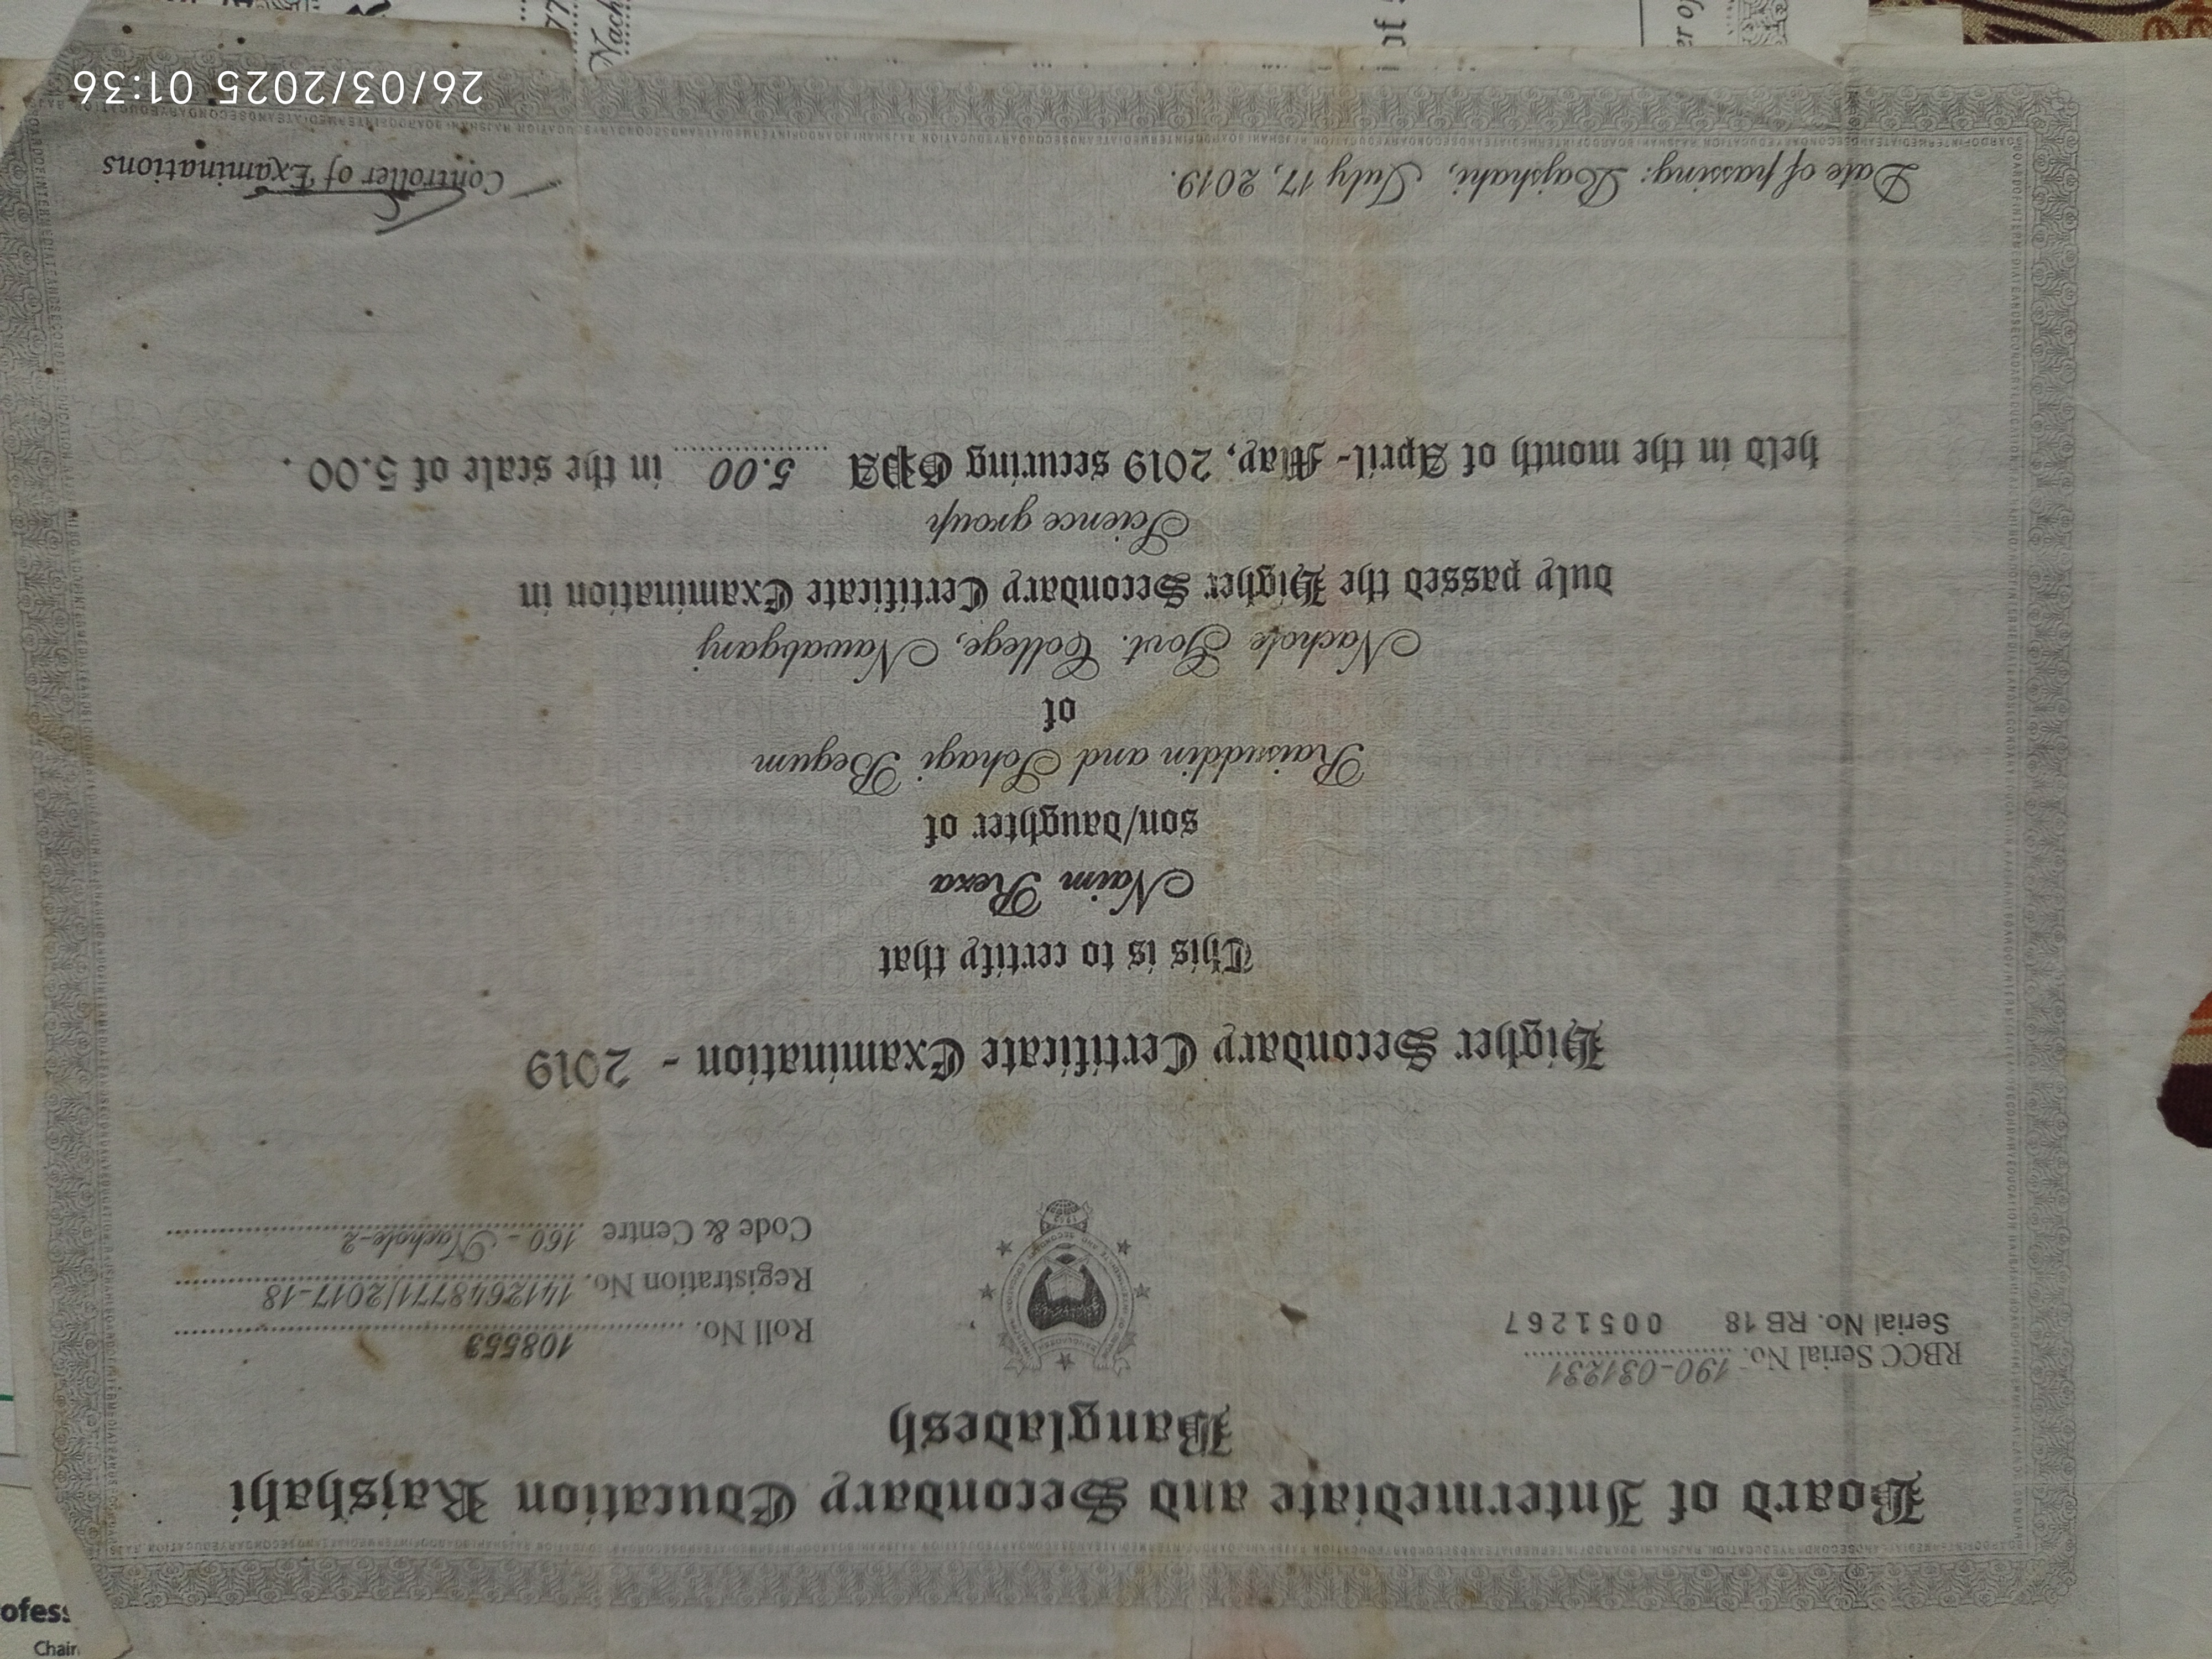 Board of Intermediate and Secondary Education Rajshahi
Bangladesh
RBCC Serial No. 190-031231
Serial No. RB 18 0051267
Roll No. 108553
Registration No. 1412648771/2017-18
Code & Centre 160 - Nachole-2
Higher Secondary Certificate Examination - 2019
This is to certify that
Naim Reza
son/daughter of
Raisuddin and Sohagi Begum
of
Nachole Govt. College, Nawabganj
duly passed the Higher Secondary Certificate Examination in
Science group
held in the month of April- May, 2019 securing GPA 5.00 in the scale of 5.00 .
Date of passing: Rajshahi, July 17, 2019.
Controller of Examinations
26/03/2025 01:36